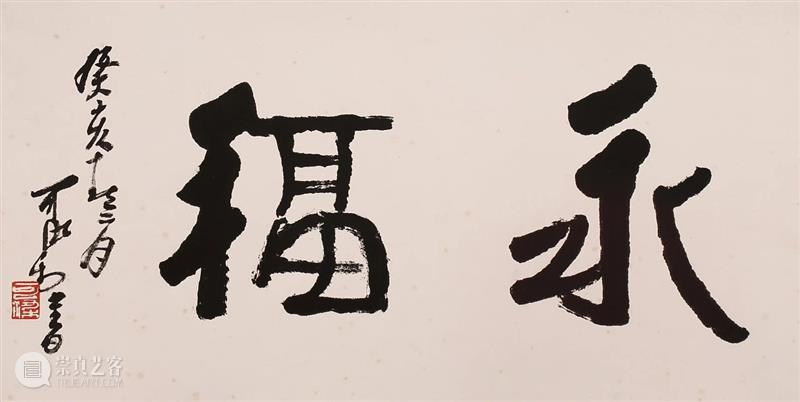 永福
癸亥十二月
可染書
崇真艺客
TRUEART.COM